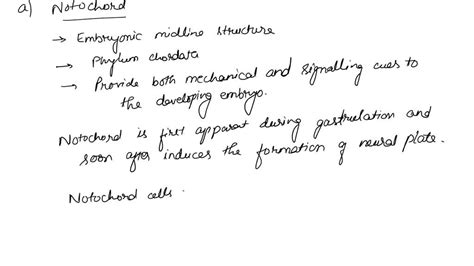 a) Notochord
→ Embryonic midline structure
→ Phylum chordata
→ Provide both mechanical and signalling cues to
the developing embryo.
Notochord is first apparat during gastrulation and
soon after induces the formation of neural plate.
Notochord cells .